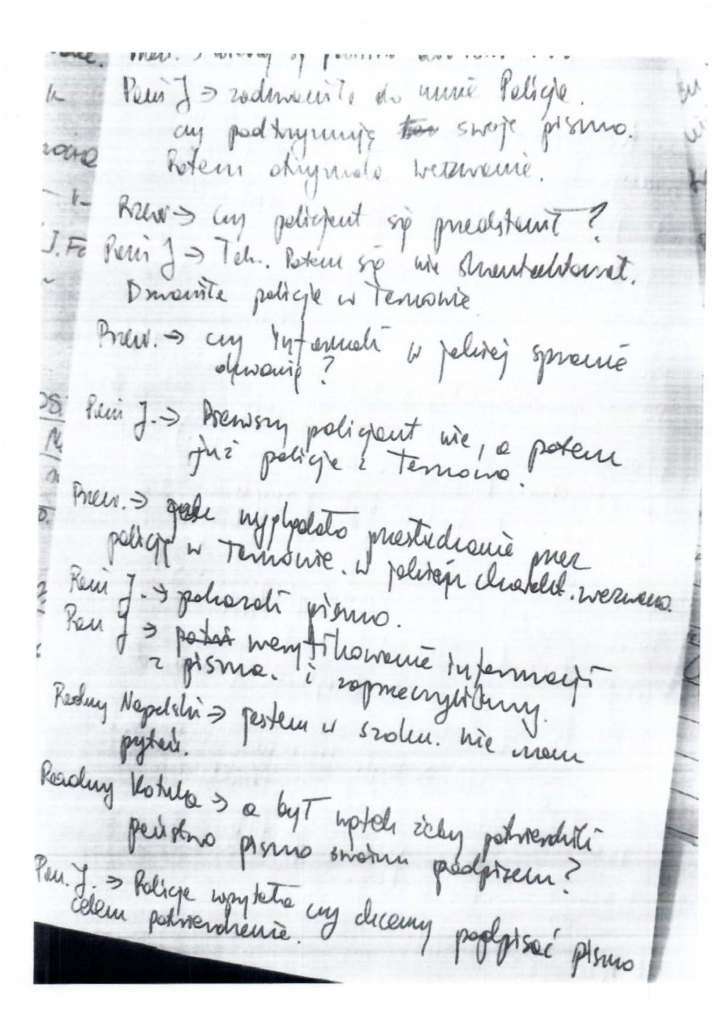 Pani J → zadzwoniła do mnie Policja.
czy podtrzymuję swoje pismo.
Potem otrzymała wezwanie.
Przew → czy policjant się przedstawił?
Pani J → Tak. Potem się nie skontaktował.
Dzwoniła policja w Tarnowie
Przew. → czy informowali w jakiej sprawie
dzwonią?
Pani J. → Pierwszy policjant nie, a potem
już policja z Tarnowa.
Przew. → jak wyglądało przesłuchanie przez
policję w Tarnowie. w jakiej charakt. wezwano.
Pani J. → pokazali pismo.
Pan J → weryfikowanie informacji
z pisma. i zaprzeczyliśmy.
Radny Napolski → jestem w szoku. nie mam
pytań.
Radny Kotuła → a był wątek żeby potwierdzili
państwo pismo swoim podpisem?
Pan. J. → Policja wypytała czy chcemy podpisać pismo
celem potwierdzenia.